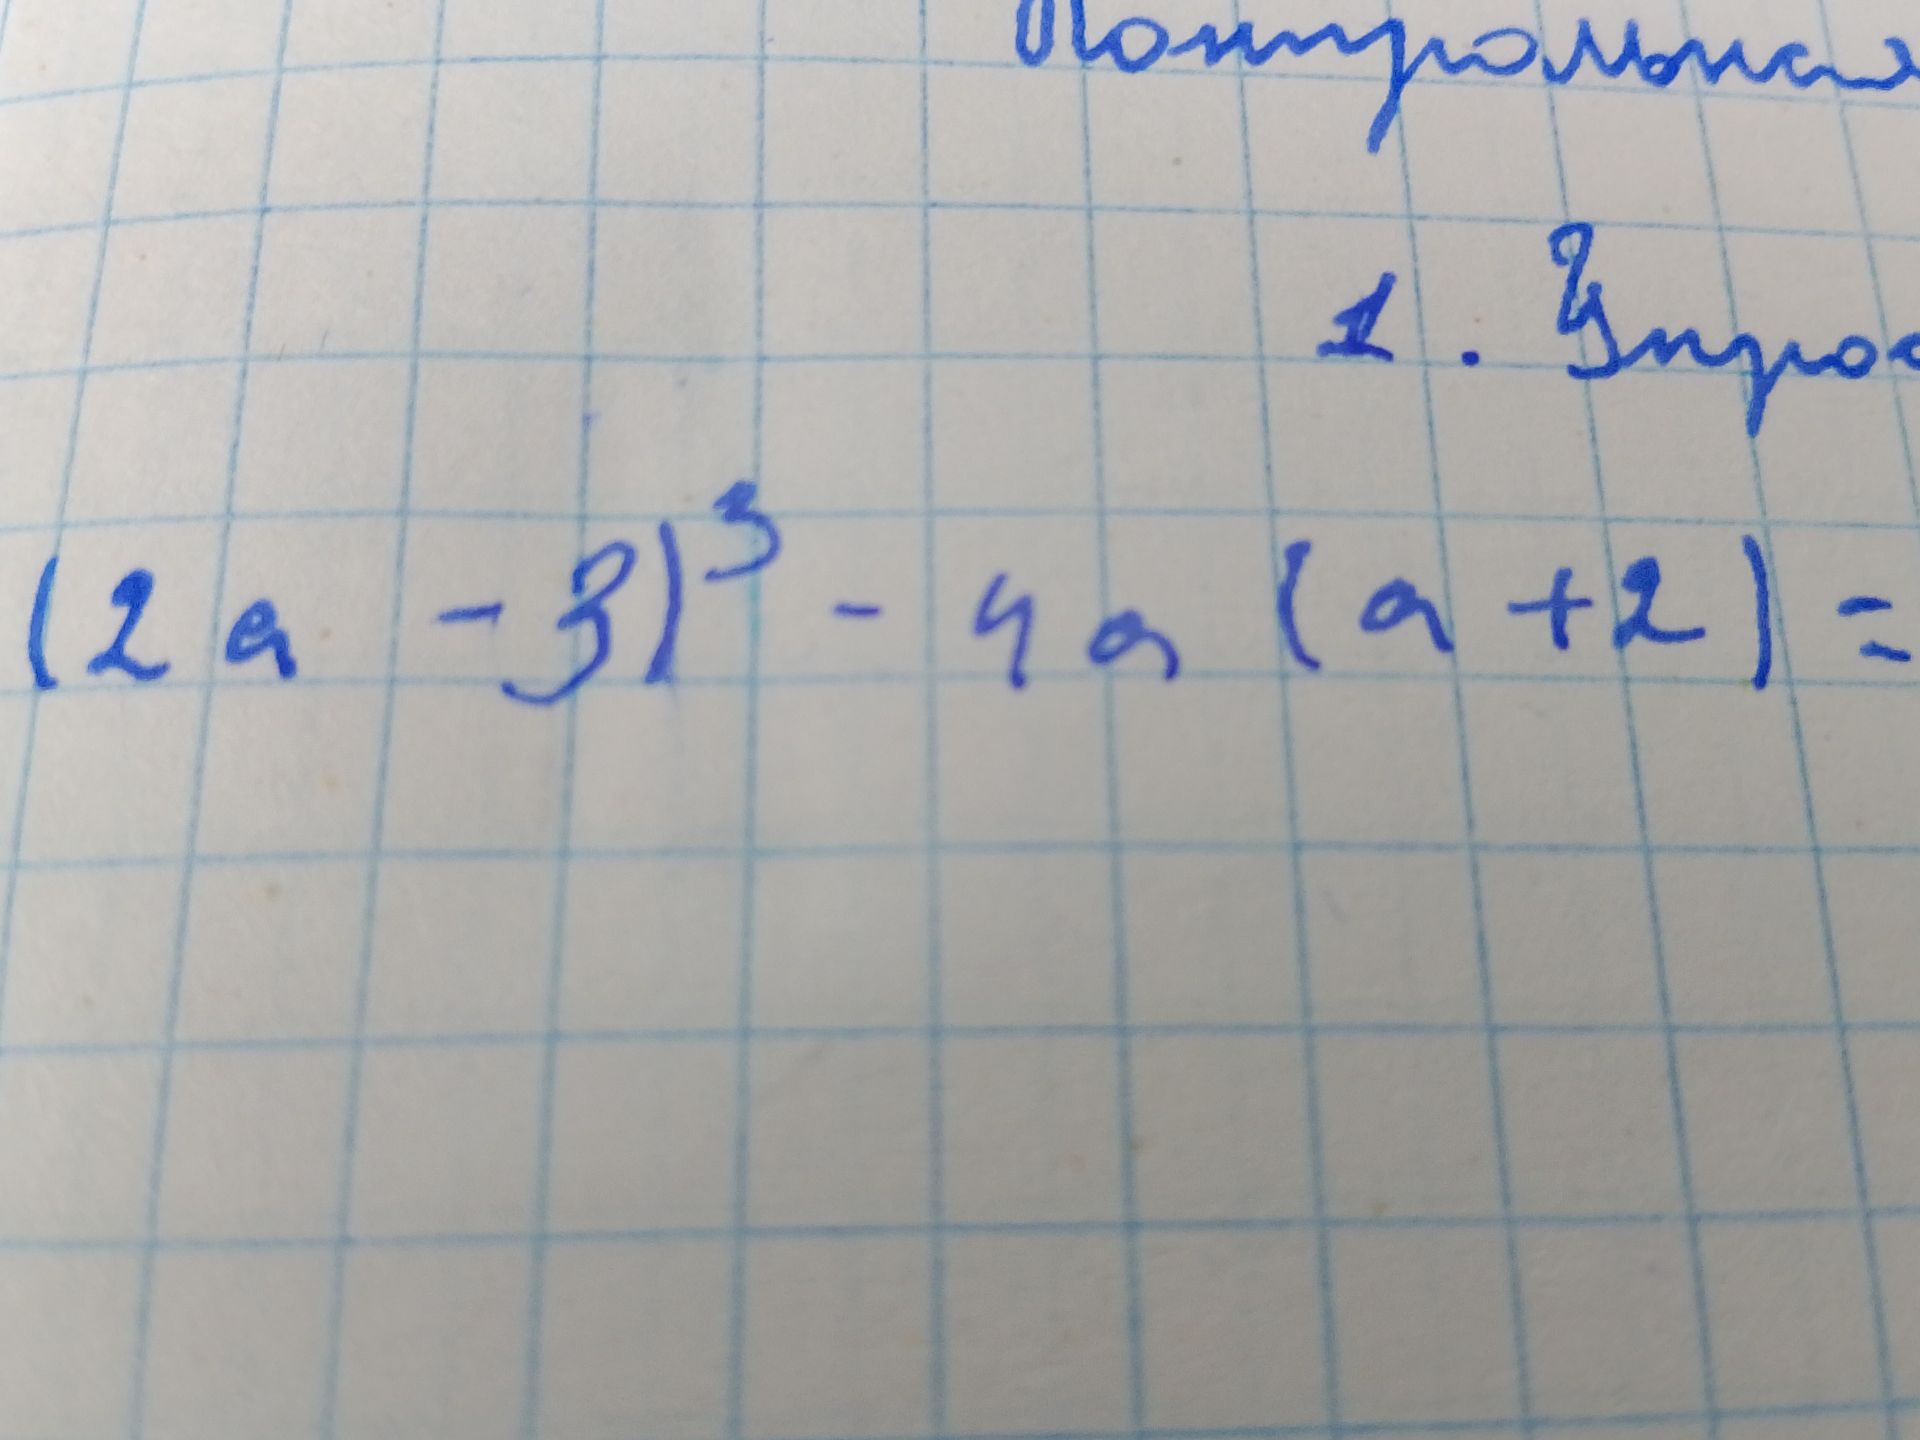 Контрольная
1. Упрос
(2a - 3)³ - 4a (a + 2) =